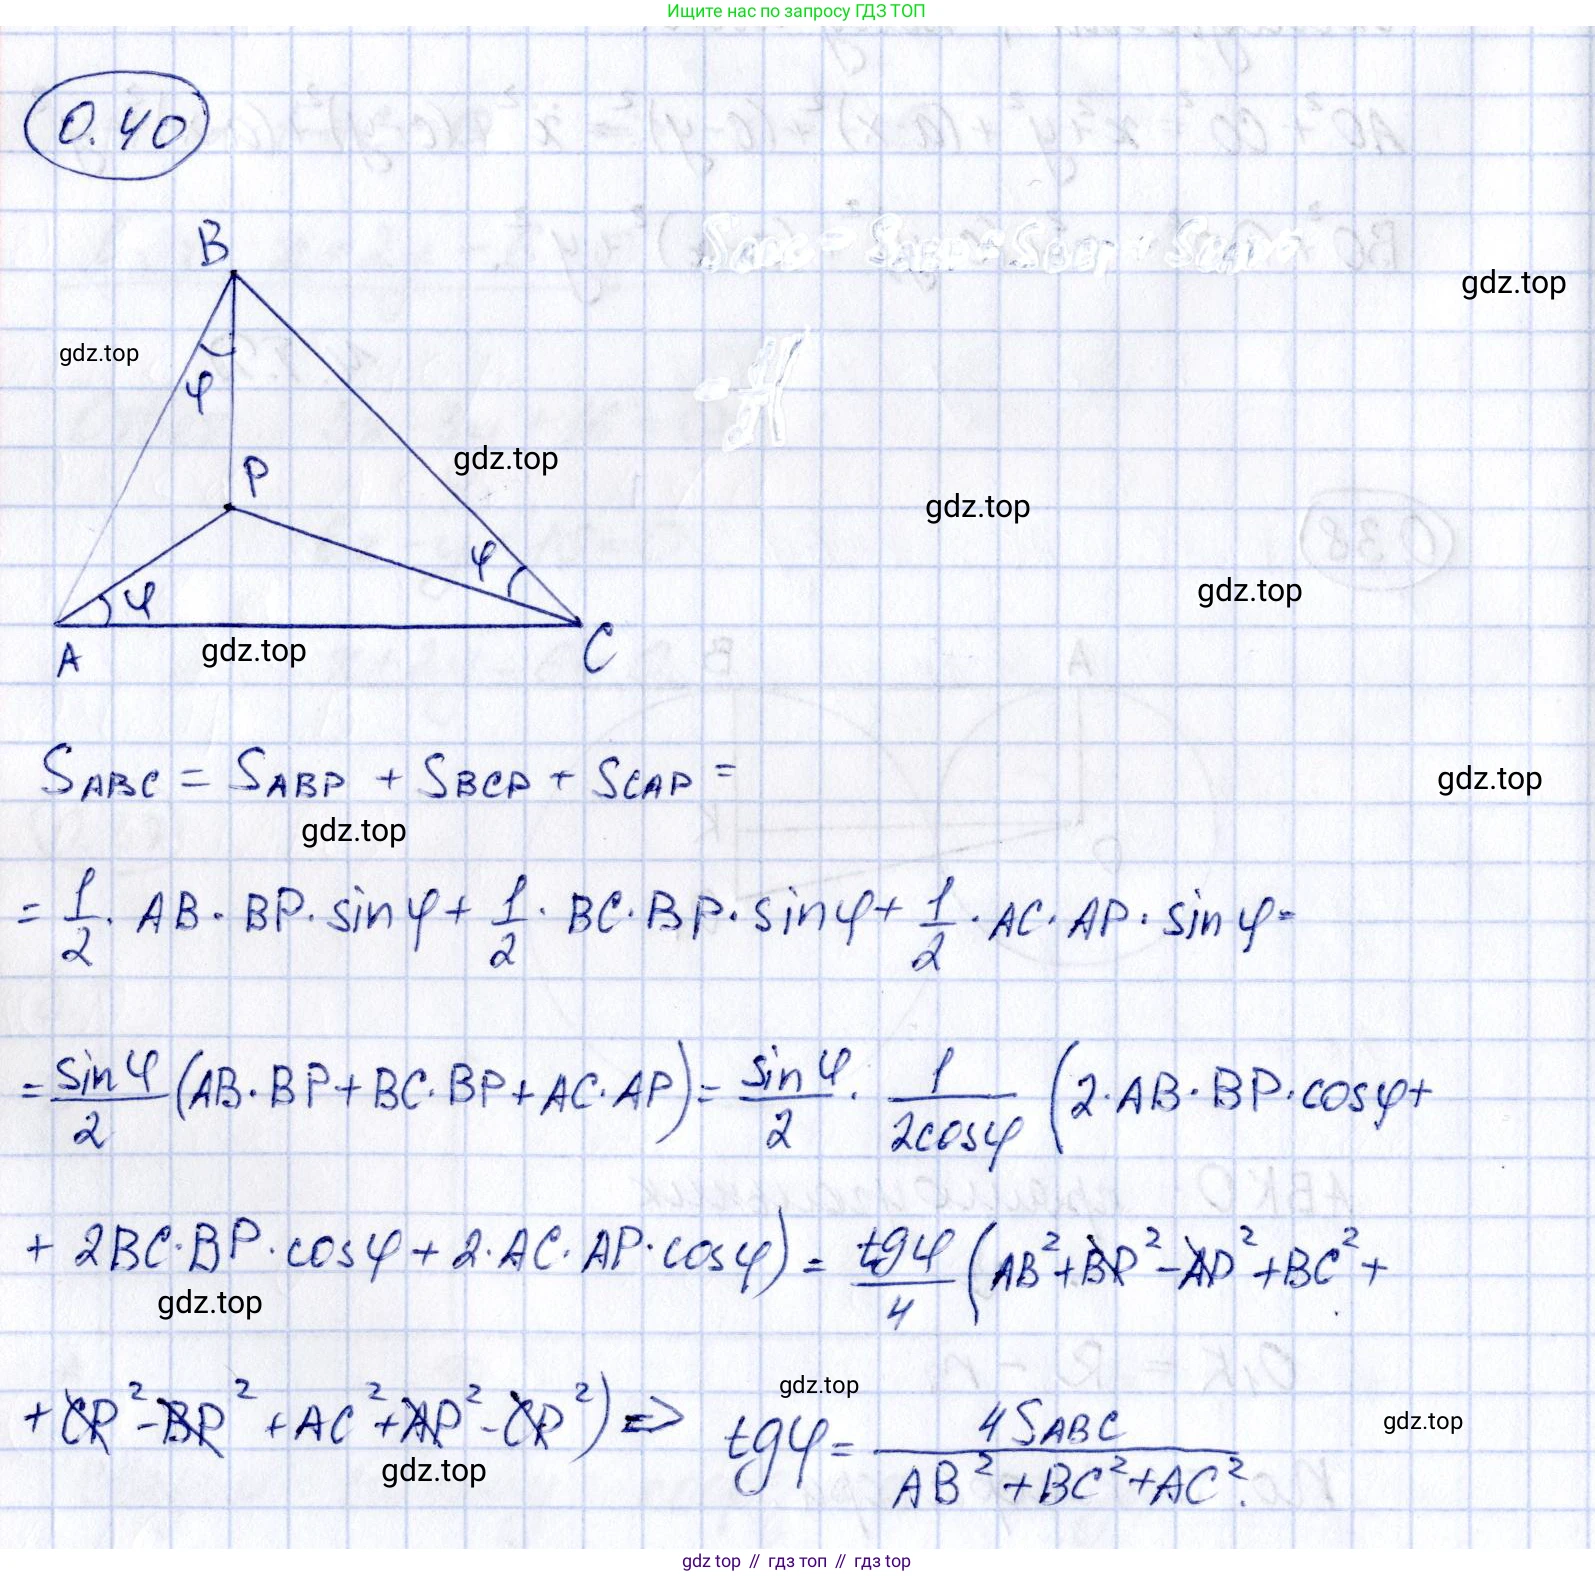 Ищите нас по запросу ГДЗ ТОП
0.40
B
gdz.top
gdz.top
φ
gdz.top
P
gdz.top
φ
gdz.top
φ
A
gdz.top
C
S_ABC = S_ABP + S_BCP + S_CAP =
gdz.top
gdz.top
= 1/2 · AB · BP · sin φ + 1/2 · BC · BP · sin φ + 1/2 · AC · AP · sin φ =
= sin φ/2 (AB · BP + BC · BP + AC · AP) = sin φ/2 · 1/2cos φ (2 · AB · BP · cos φ +
+ 2BC · BP · cos φ + 2 · AC · AP · cos φ) = tg φ/4 (AB² + BP² - AP² + BC² +
gdz.top
+ CP² - BP² + AC² + AP² - CP²) => tg φ = 4S_ABC / AB² + BC² + AC².
gdz.top
gdz.top
gdz.top
gdz.top // гдз топ // гдз top